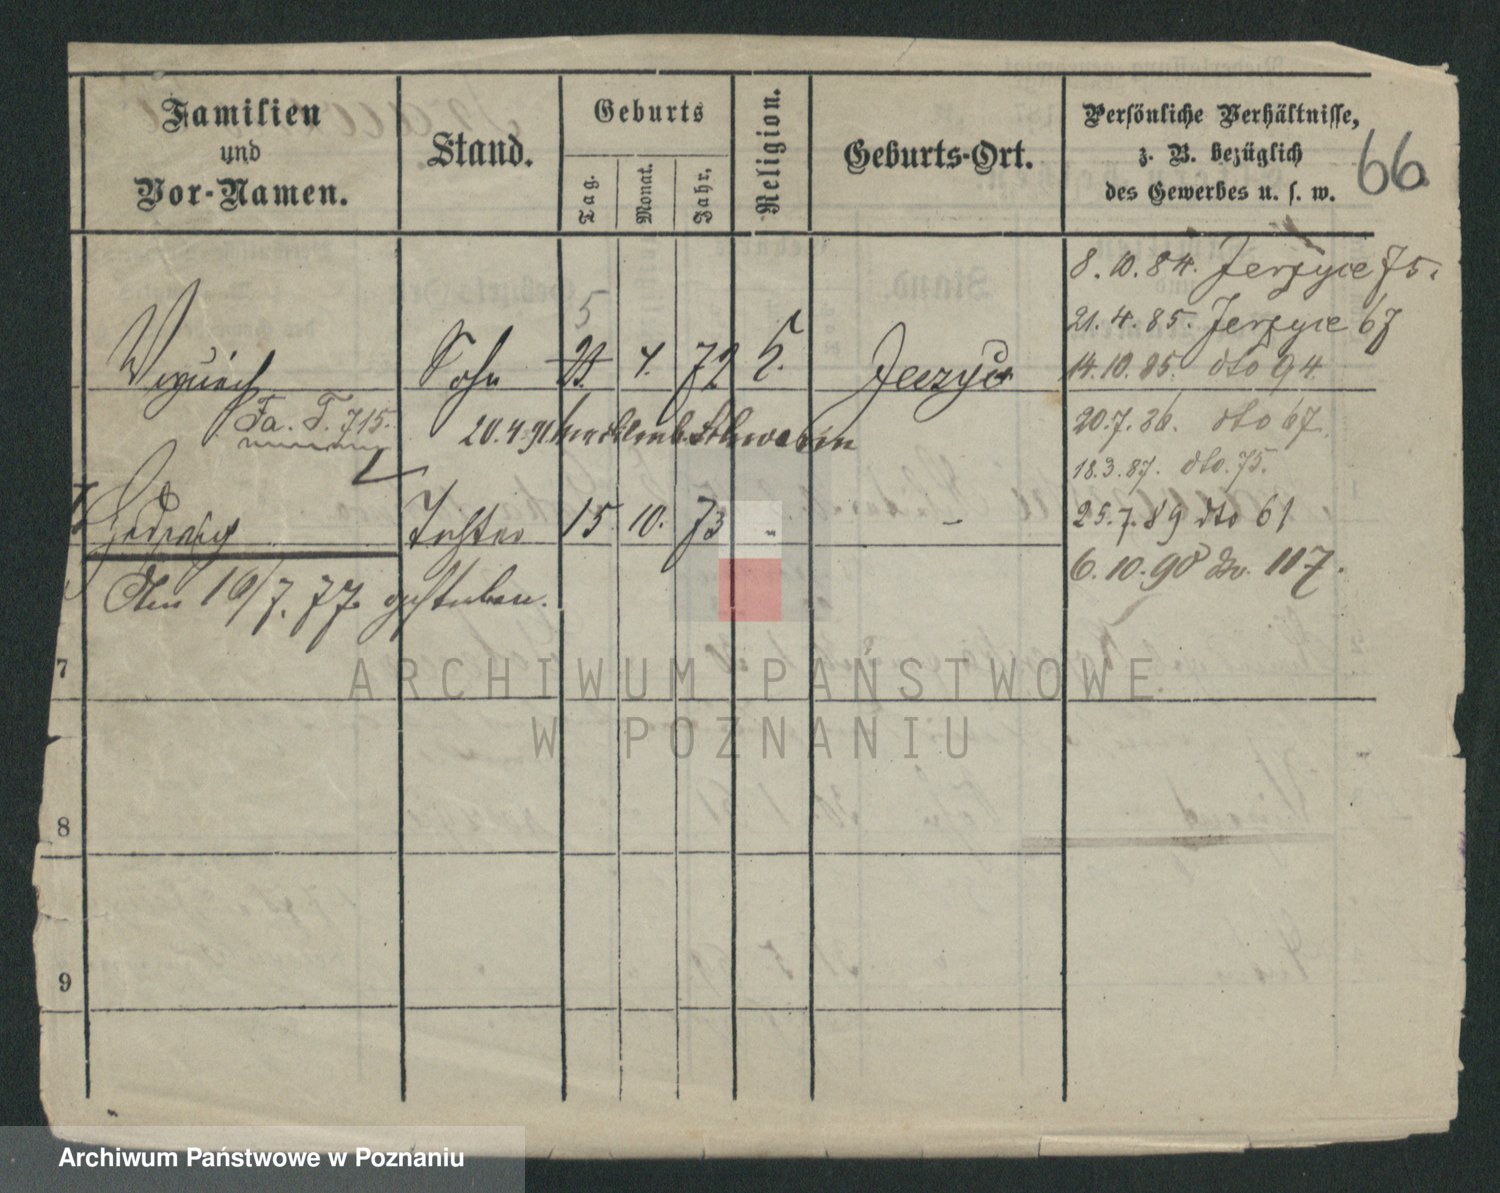 Familien
und
Vor-Namen.
Stand.
Geburts
Tag.
Monat.
Jahr.
Religion.
Geburts-Ort.
Persönliche Verhältnisse,
z. B. bezüglich
des Gewerbes u. s. w.
66
8. 10. 84. Jerzyce 75.
21. 4. 85. Jerzyce 67
14. 10. 85. dto 94
20. 7. 86. dto 67.
18. 3. 87. dto. 75.
25. 7. 89 dto 61
6. 10. 90 do. 117.
5
Sohn 21 4. 72 Jerzyce
Fa. F. 715.
20. 4. 91 Schwerin
Hedwig Tochter 15. 10. 73 " -
Am 16/7. 77. gestorben.
7
8
9
ARCHIWUM PAŃSTWOWE
W POZNANIU
Archiwum Państwowe w Poznaniu